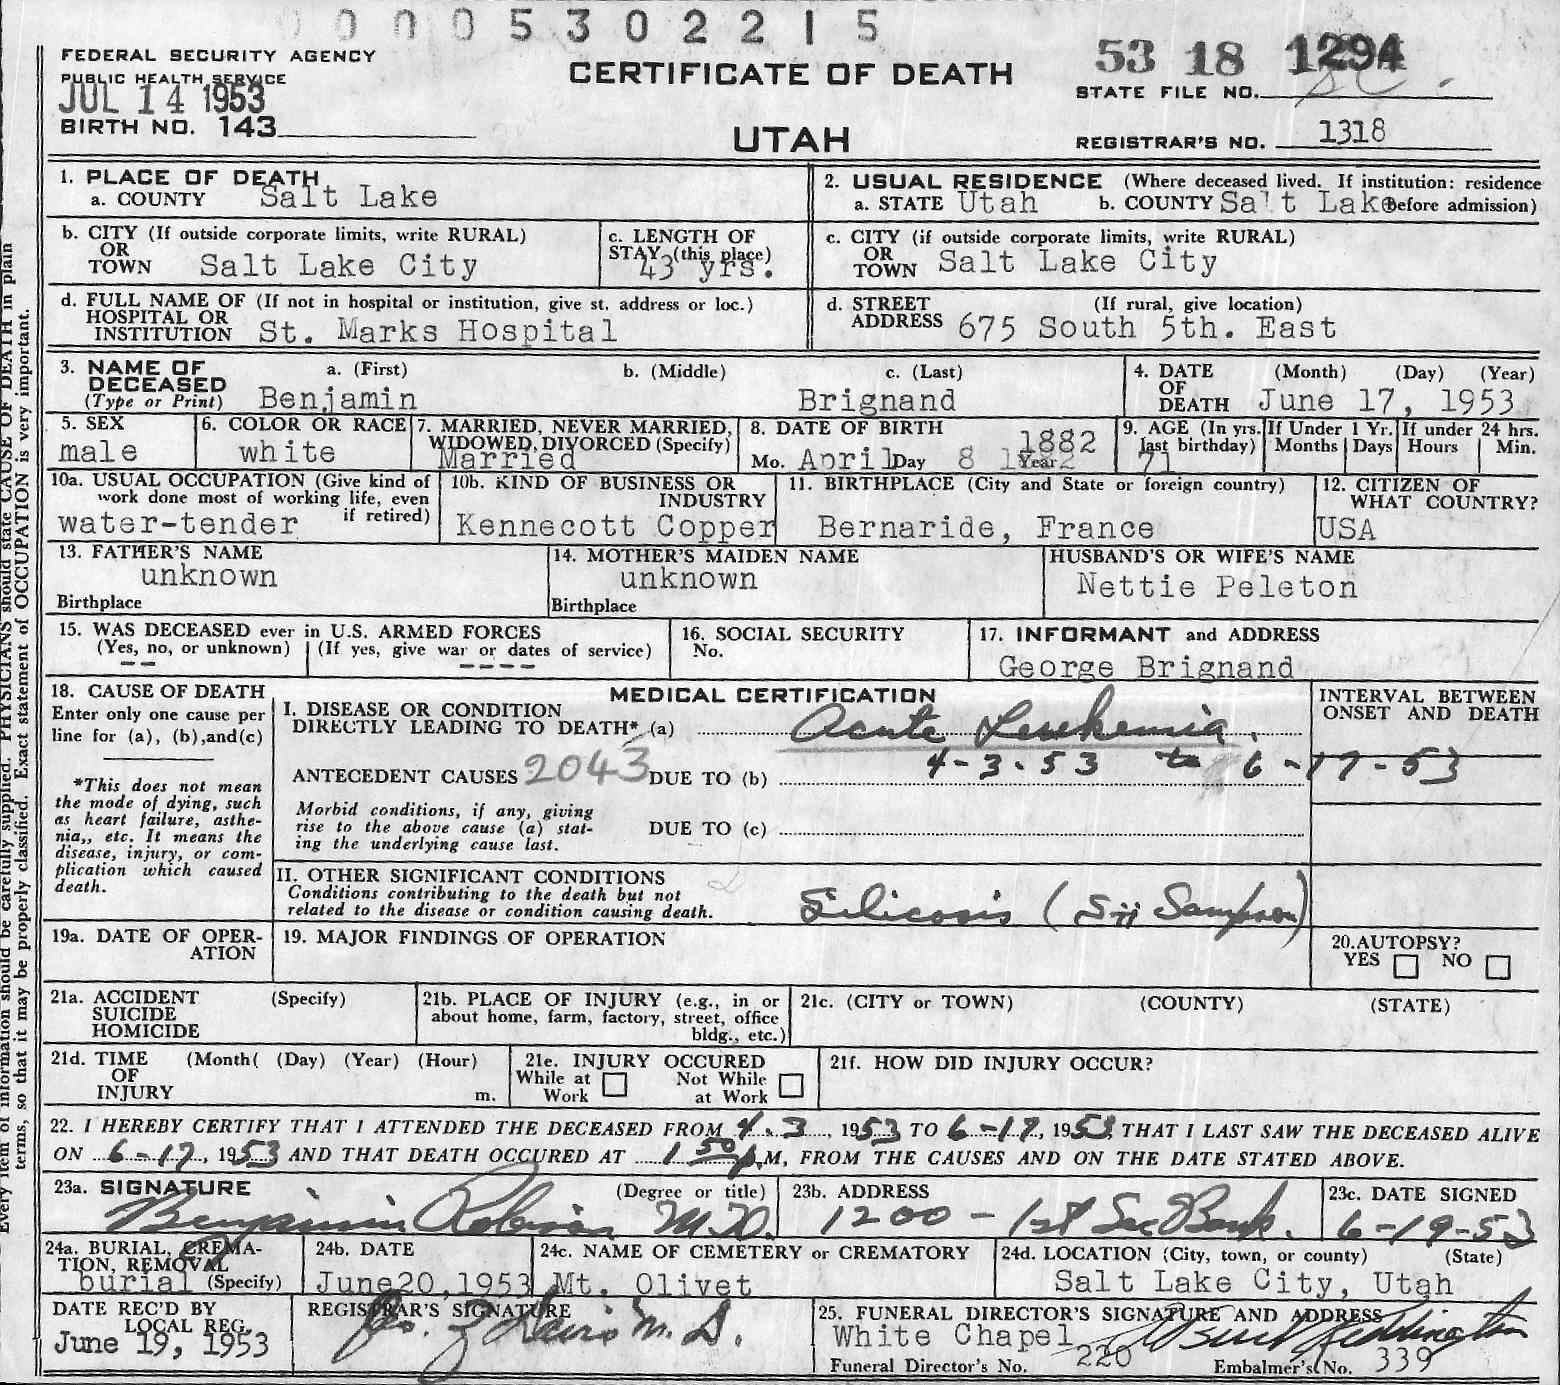 0 0 0 5 3 0 2 2 1 5
FEDERAL SECURITY AGENCY
PUBLIC HEALTH SERVICE
JUL 14 1953
BIRTH NO. 143
CERTIFICATE OF DEATH
UTAH
53 18 1294
STATE FILE NO.
REGISTRAR'S NO. 1318
1. PLACE OF DEATH
a. COUNTY Salt Lake
2. USUAL RESIDENCE (Where deceased lived. If institution: residence before admission)
a. STATE Utah b. COUNTY Salt Lake
b. CITY (If outside corporate limits, write RURAL)
OR
TOWN Salt Lake City
c. LENGTH OF
STAY (this place)
43 yrs.
c. CITY (if outside corporate limits, write RURAL)
OR
TOWN Salt Lake City
d. FULL NAME OF (If not in hospital or institution, give st. address or loc.)
HOSPITAL OR
INSTITUTION St. Marks Hospital
d. STREET (If rural, give location)
ADDRESS 675 South 5th. East
3. NAME OF a. (First) b. (Middle) c. (Last)
DECEASED
(Type or Print) Benjamin Brignand
4. DATE (Month) (Day) (Year)
OF
DEATH June 17, 1953
5. SEX
male
6. COLOR OR RACE
white
7. MARRIED, NEVER MARRIED,
WIDOWED, DIVORCED (Specify)
Married
8. DATE OF BIRTH 1882
Mo. April Day 8 1882 Year
9. AGE (In yrs. last birthday) 71
If Under 1 Yr. Months Days
If under 24 hrs. Hours Min.
10a. USUAL OCCUPATION (Give kind of
work done most of working life, even
if retired)
water-tender
10b. KIND OF BUSINESS OR
INDUSTRY
Kennecott Copper
11. BIRTHPLACE (City and State or foreign country)
Bernaride, France
12. CITIZEN OF
WHAT COUNTRY?
USA
13. FATHER'S NAME
unknown
Birthplace
14. MOTHER'S MAIDEN NAME
unknown
Birthplace
HUSBAND'S OR WIFE'S NAME
Nettie Peleton
15. WAS DECEASED ever in U.S. ARMED FORCES
(Yes, no, or unknown) (If yes, give war or dates of service)
-- ----
16. SOCIAL SECURITY
No.
17. INFORMANT and ADDRESS
George Brignand
18. CAUSE OF DEATH
Enter only one cause per
line for (a), (b), and (c)
*This does not mean
the mode of dying, such
as heart failure, asthe-
nia,, etc. It means the
disease, injury, or com-
plication which caused
death.
MEDICAL CERTIFICATION
I. DISEASE OR CONDITION
DIRECTLY LEADING TO DEATH* (a) Acute Leukemia.
ANTECEDENT CAUSES 2043 DUE TO (b) 4-3-53 to 6-17-53
Morbid conditions, if any, giving
rise to the above cause (a) stat-
ing the underlying cause last.
DUE TO (c)
INTERVAL BETWEEN
ONSET AND DEATH
II. OTHER SIGNIFICANT CONDITIONS
Conditions contributing to the death but not
related to the disease or condition causing death.
Silicosis (Sampson)
19a. DATE OF OPER-
ATION
19. MAJOR FINDINGS OF OPERATION
20. AUTOPSY?
YES NO
21a. ACCIDENT (Specify)
SUICIDE
HOMICIDE
21b. PLACE OF INJURY (e.g., in or
about home, farm, factory, street, office
bldg., etc.)
21c. (CITY or TOWN) (COUNTY) (STATE)
21d. TIME (Month( (Day) (Year) (Hour)
OF
INJURY m.
21e. INJURY OCCURED
While at Work Not While at Work
21f. HOW DID INJURY OCCUR?
22. I HEREBY CERTIFY THAT I ATTENDED THE DECEASED FROM 4-3, 1953 TO 6-17, 1953, THAT I LAST SAW THE DECEASED ALIVE
ON 6-17, 1953 AND THAT DEATH OCCURED AT 1 50 p M, FROM THE CAUSES AND ON THE DATE STATED ABOVE.
23a. SIGNATURE (Degree or title)
Benjamin Robison M.D.
23b. ADDRESS
1200 - 1st Sec Bank.
23c. DATE SIGNED
6-19-53
24a. BURIAL, CREMA-
TION, REMOVAL
burial (Specify)
24b. DATE
June 20, 1953
24c. NAME OF CEMETERY or CREMATORY
Mt. Olivet
24d. LOCATION (City, town, or county) (State)
Salt Lake City, Utah
DATE REC'D BY
LOCAL REG.
June 19, 1953
REGISTRAR'S SIGNATURE
M. D.
25. FUNERAL DIRECTOR'S SIGNATURE AND ADDRESS
White Chapel
Funeral Director's No. 220 Embalmer's No. 339
Every item of information should be carefully supplied. PHYSICIANS should state CAUSE OF DEATH in plain
terms, so that it may be properly classified. Exact statement of OCCUPATION is very important.